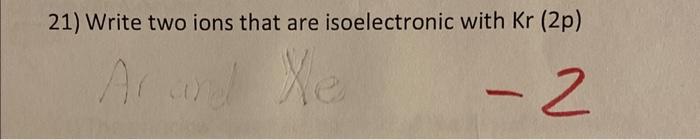 21) Write two ions that are isoelectronic with Kr (2p)
Ar and Xe -2